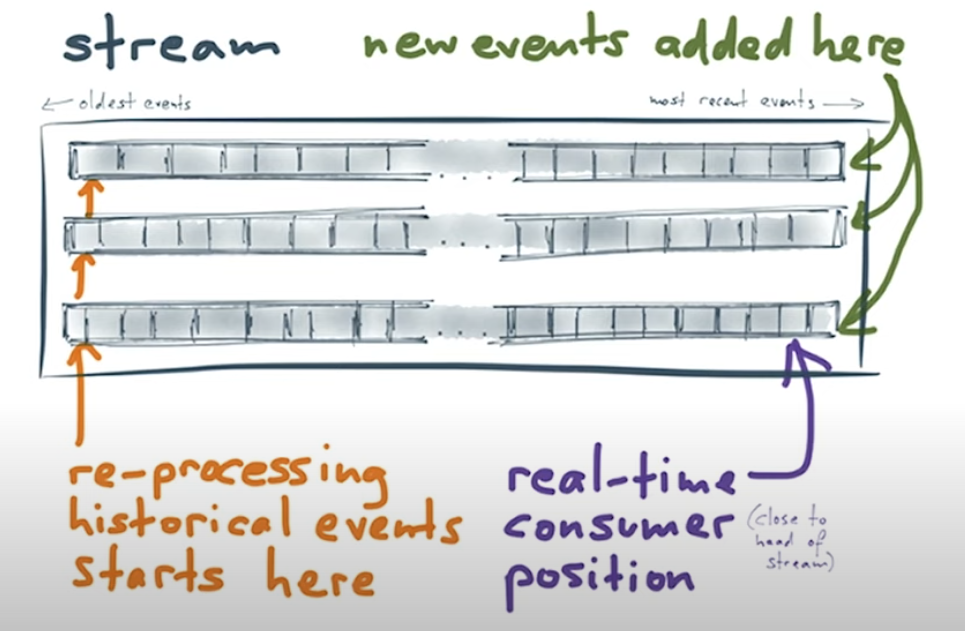 stream
new events added here
← oldest events
most recent events →
. . .
. . .
. . .
re-processing
historical events
starts here
real-time
consumer
position
(close to
head of
stream)